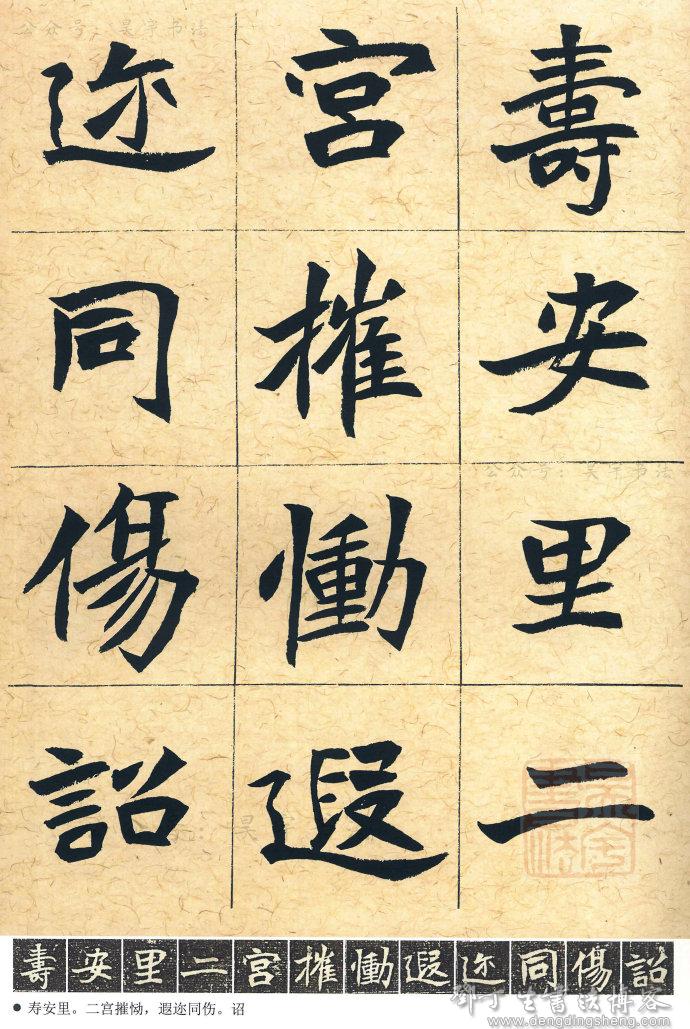 公众号：昊宇书法
壽安里二
宮摧慟遐
迩同傷詔
公众号：昊宇书法
壽安里二宮摧慟遐迩同傷詔
● 寿安里。二宫摧恸，遐迩同伤。诏
邓丁生书法博客
www.dengdingsheng.com